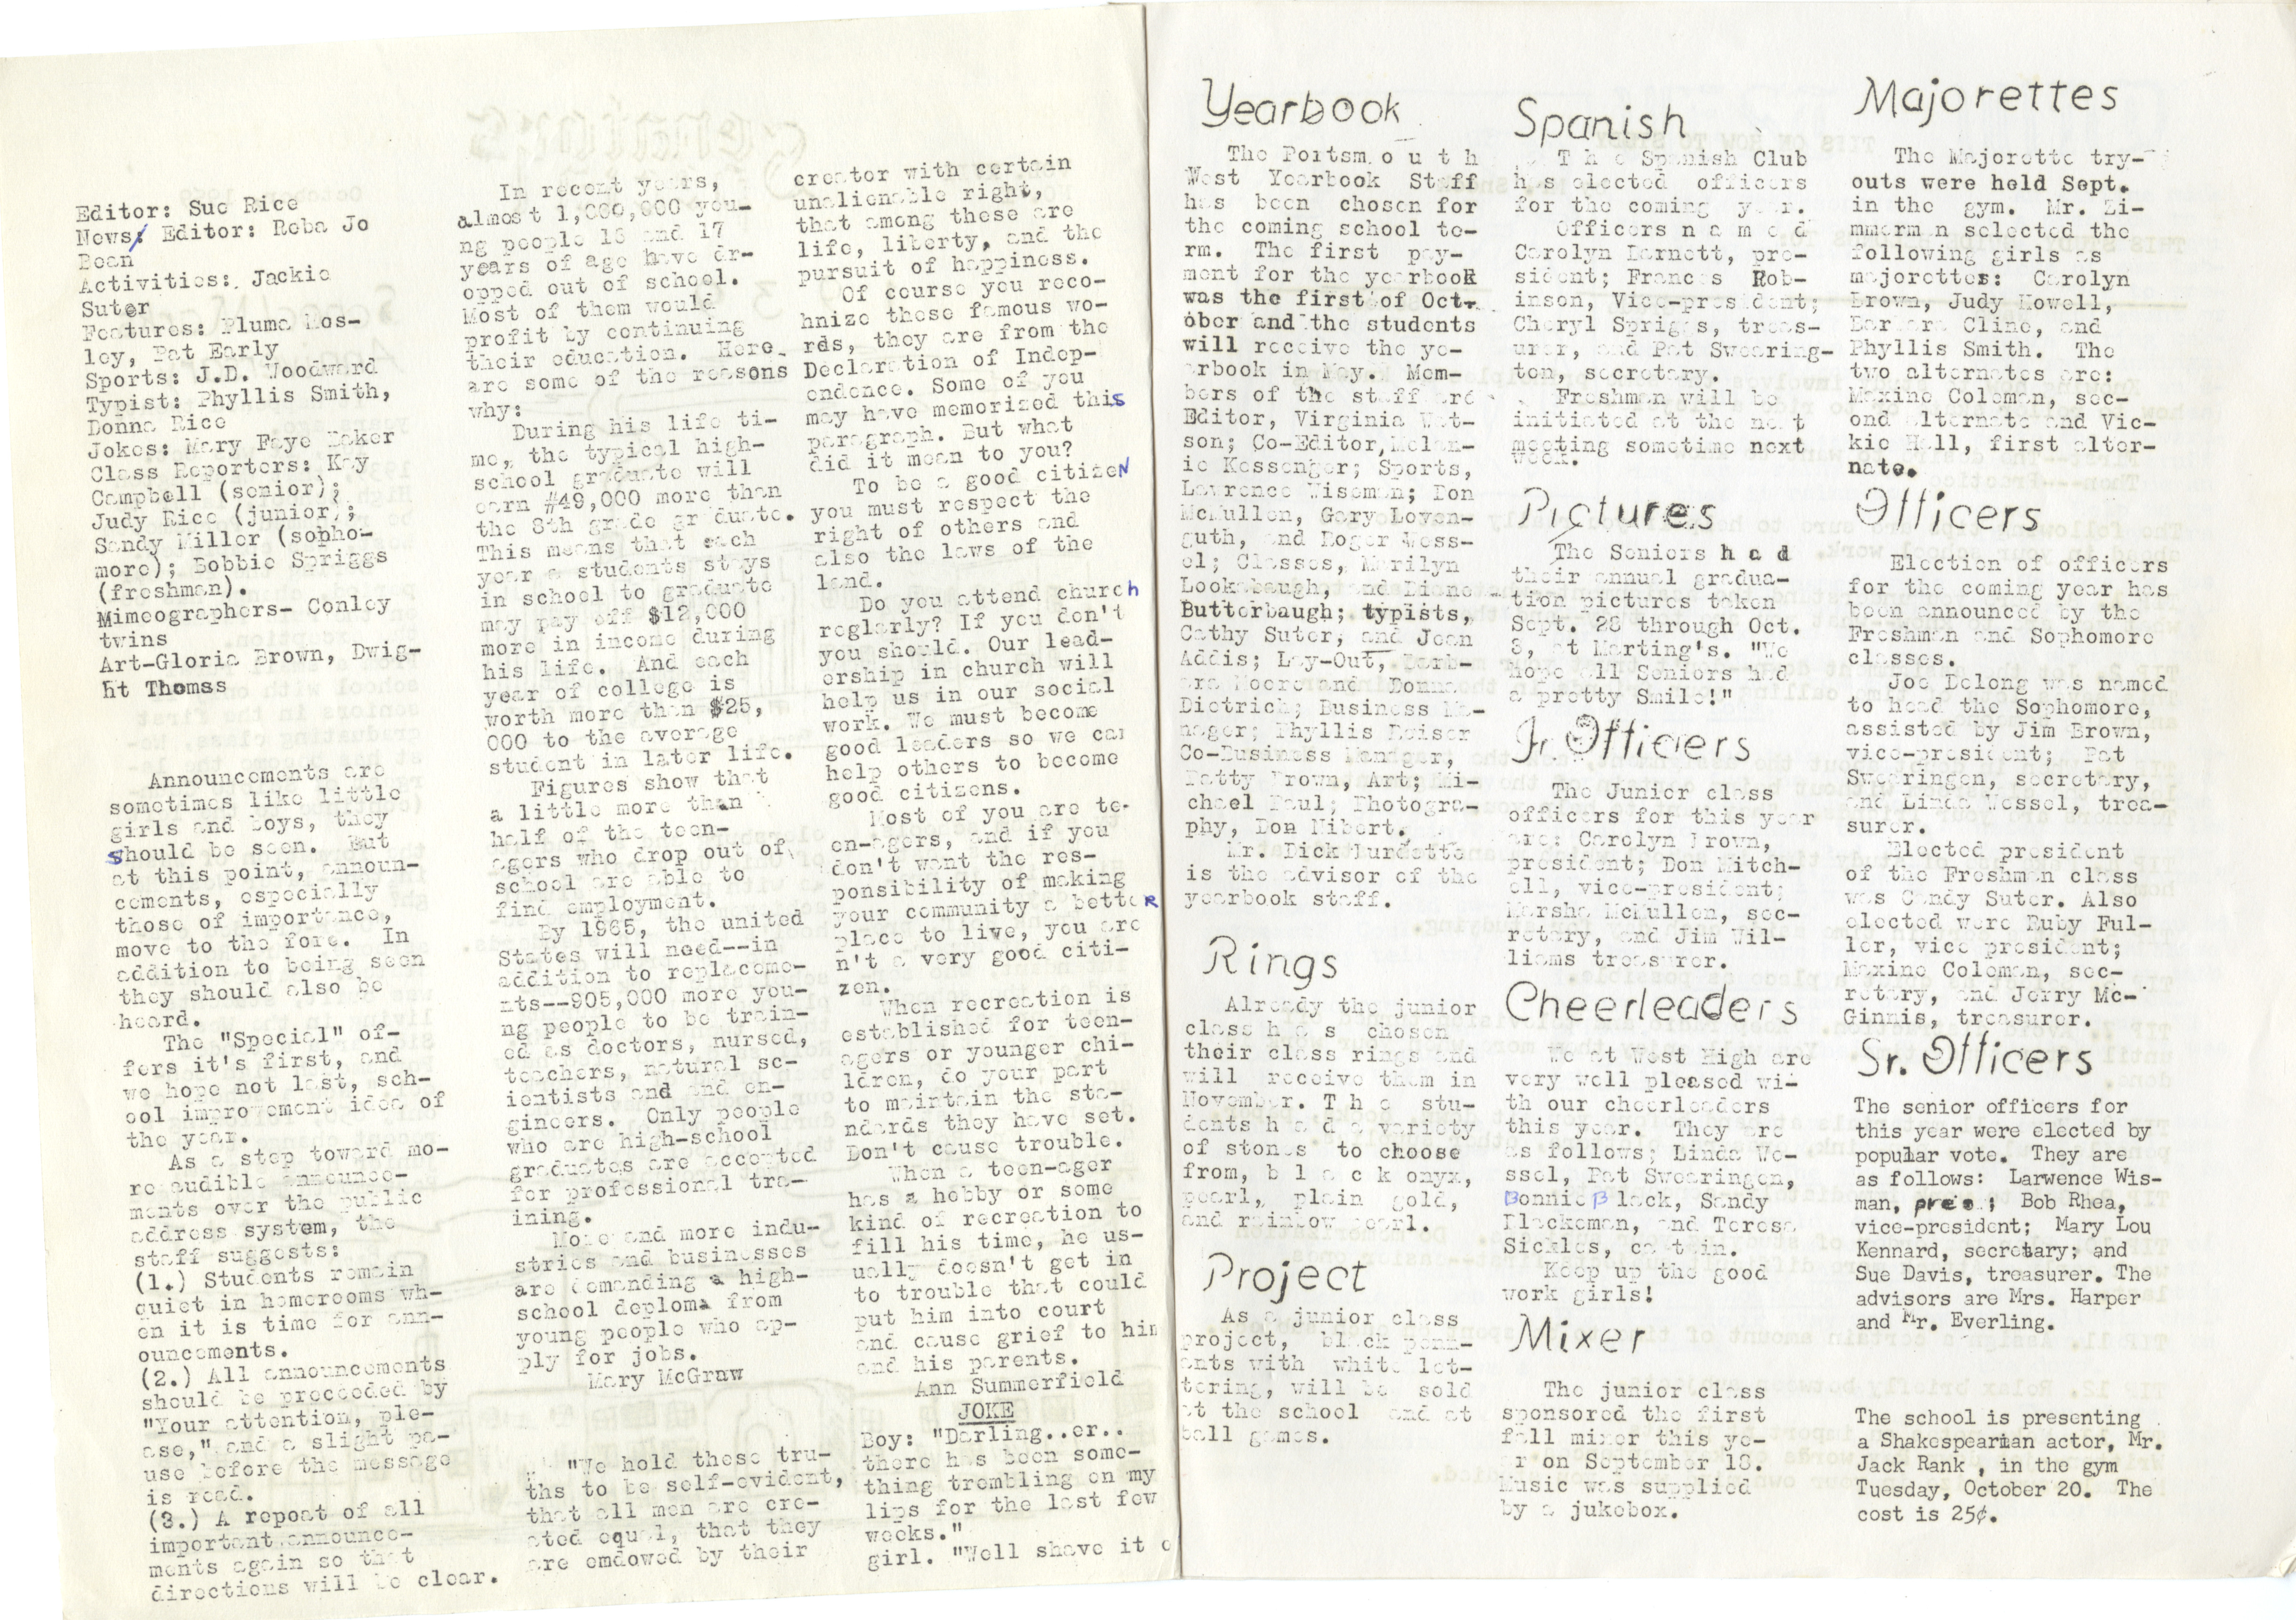 Editor: Sue Rice
News: Editor: Reba Jo
Bean
Activities: Jackie
Suter
Features: Pluma Mos-
ley, Pat Early
Sports: J.D. Woodward
Typist: Phyllis Smith,
Donna Rice
Jokes: Mary Faye Baker
Class Reporters: Kay
Campbell (senior);
Judy Rice (junior);
Sandy Miller (sopho-
more); Bobbie Spriggs
(freshman).
Mimeographers- Conley
twins
Art-Gloria Brown, Dwig-
ht Thomas
Announcements are
sometimes like little
girls and boys, they
should be seen. But
at this point, announ-
cements, especially
those of importance,
move to the fore. In
addition to being seen
they should also be
heard.
The "Special" of-
fers it's first, and
we hope not last, sch-
ool improvement idea of
the year.
As a step toward mo-
re audible announce-
ments over the public
address system, the
staff suggests:
(1.) Students remain
quiet in homerooms wh-
en it is time for ann-
ouncements.
(2.) All announcements
should be preceeded by
"Your attention, ple-
ase," and a slight pa-
use before the message
is read.
(3.) A repeat of all
important announce-
ments again so that
directions will be clear.
In recent years,
almost 1,000,000 you-
ng people 16 and 17
years of age have dr-
opped out of school.
Most of them would
profit by continuing
their education. Here
are some of the reasons
why:
During his life ti-
me, the typical high-
school graduate will
earn #49,000 more than
the 8th grade graduate.
This means that each
year a students stays
in school to graduate
may pay off $12,000
more in income during
his life. And each
year of college is
worth more than $25,
000 to the average
student in later life.
Figures show that
a little more than
half of the teen-
agers who drop out of
school are able to
find employment.
By 1965, the united
States will need--in
addition to replaceme-
nts--905,000 more you-
ng people to be train-
ed as doctors, nursed,
teachers, natural sc-
ientists and and en-
gineers. Only people
who are high-school
graduates are accepted
for professional tra-
ining.
More and more indu-
stries and businesses
are demanding a high-
school deploma from
young people who ap-
ply for jobs.
Mary McGraw
"We hold these tru-
ths to be self-evident,
that all men are cre-
ated equal, that they
are emdowed by their
creator with certain
unalienable right,
that among these are
life, liberty, and the
pursuit of happiness.
Of course you reco-
hnize these famous wo-
rds, they are from the
Declaration of Indep-
endence. Some of you
may have memorized this
paragraph. But what
did it mean to you?
To be a good citizeN
you must respect the
right of others and
also the laws of the
land.
Do you attend church
reglarly? If you don't
you should. Our lead-
ership in church will
help us in our social
work. We must become
good leaders so we can
help others to become
good citizens.
Most of you are te-
en-agers, and if you
don't want the res-
ponsibility of making
your community a betteR
place to live, you are
n't a very good citi-
zen.
When recreation is
established for teen-
agers or younger chi-
ldren, do your part
to maintain the sta-
ndards they have set.
Don't cause trouble.
When a teen-ager
has a hobby or some
kind of recreation to
fill his time, he us-
ually doesn't get in
to trouble that could
put him into court
and cause grief to him
and his parents.
Ann Summerfield
JOKE
Boy: "Darling..er..
there has been some-
thing trembling on my
lips for the last few
weeks."
girl. "Well shave it o
Yearbook
The Portsmouth
West Yearbook Staff
has been chosen for
the coming school te-
rm. The first pay-
ment for the yearbook
was the first of Oct-
ober and the students
will receive the ye-
arbook in May. Mem-
bers of the staff are
Editor, Virginia Wat-
son; Co-Editor, Melan-
ie Kessenger; Sports,
Lawrence Wiseman; Don
McMullen, Gary Loven-
guth, and Roger Wess-
el; Classes, Marilyn
Lookabaugh, and Diane
Butterbaugh; typists,
Cathy Suter, and Jean
Addis; Lay-Out, Barb-
ara Moore and Donna
Dietrich; Business Ma-
nager; Phyllis Reiser
Co-Business Manger,
Patty Brown, Art; Mi-
chael Paul; Photogra-
phy, Don Nibert.
Mr. Dick Burdette
is the advisor of the
yearbook staff.
Rings
Already the junior
class has chosen
their class rings and
will receive them in
November. The stu-
dents had a variety
of stones to choose
from, black onyx,
pearl, plain gold,
and rainbow pearl.
Project
As a junior class
project, black penn-
ants with white let-
tering, will be sold
at the school and at
ball games.
Spanish
The Spanish Club
has elected officers
for the coming year.
Officers named
Carolyn Barnett, pre-
sident; Frances Rob-
inson, Vice-president;
Cheryl Spriggs, treas-
urer, and Pat Swearing-
ton, secretary.
Freshman will be
initiated at the next
meeting sometime next
week.
Pictures
The Seniors had
their annual gradua-
tion pictures taken
Sept. 28 through Oct.
3, at Marting's. "We
hope all Seniors had
a pretty Smile!"
Jr. Officers
The Junior class
officers for this year
are: Carolyn Brown,
president; Don Mitch-
ell, vice-president;
Marsha McMullen, sec-
retary, and Jim Wil-
liams treasurer.
Cheerleaders
We at West High are
very well pleased wi-
th our cheerleaders
this year. They are
as follows; Linda We-
ssel, Pat Swearingen,
Bonnie Black, Sandy
Blackeman, and Teresa
Sickles, captain.
Keep up the good
work girls!
Mixer
The junior class
sponsored the first
fall mixer this ye-
ar on September 18.
Music was supplied
by a jukebox.
Majorettes
The Majorette try-
outs were held Sept.
in the gym. Mr. Zi-
mmerman selected the
following girls as
majorettes: Carolyn
Brown, Judy Howell,
Barbara Cline, and
Phyllis Smith. The
two alternates are:
Maxine Coleman, sec-
ond alternate and Vic-
kie Hall, first alter-
nate.
Officers
Election of officers
for the coming year has
been announced by the
Freshman and Sophomore
classes.
Joe Delong was named
to head the Sophomore,
assisted by Jim Brown,
vice-president; Pat
Swearingen, secretary,
and Linda Wessel, trea-
surer.
Elected president
of the Freshman class
was Candy Suter. Also
elected were Ruby Ful-
ler, vice president;
Maxine Coleman, sec-
retary, and Jerry Mc-
Ginnis, treasurer.
Sr. Officers
The senior officers for
this year were elected by
popular vote. They are
as follows: Larwence Wis-
man, pres.; Bob Rhea,
vice-president; Mary Lou
Kennard, secretary; and
Sue Davis, treasurer. The
advisors are Mrs. Harper
and Mr. Everling.
The school is presenting
a Shakespearian actor, Mr.
Jack Rank , in the gym
Tuesday, October 20. The
cost is 25¢.